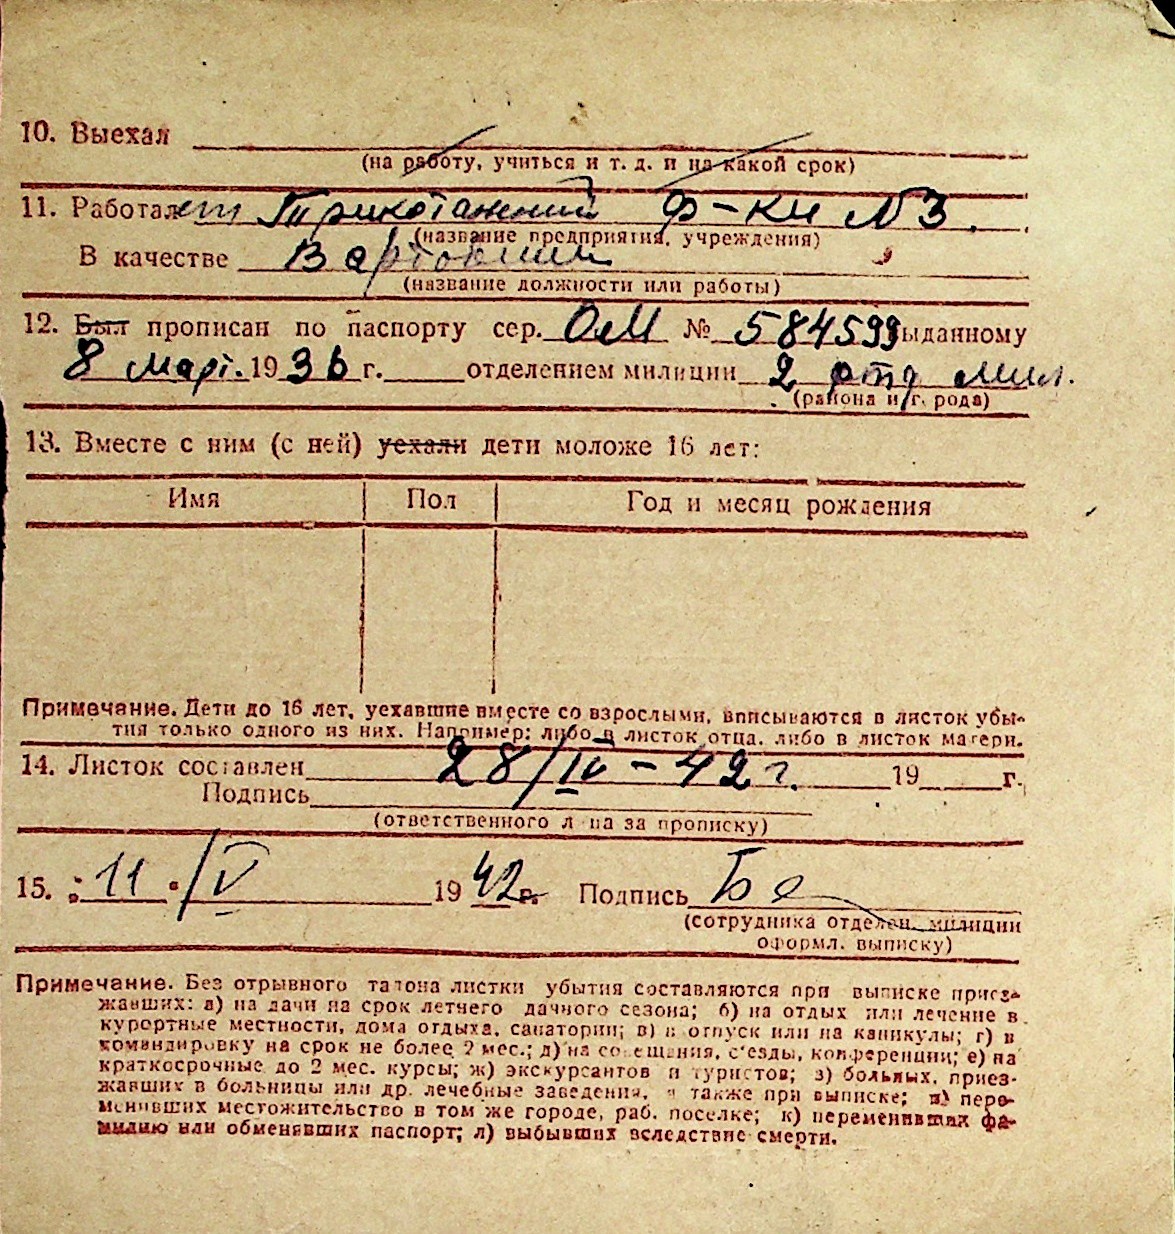 10. Выехал
(на работу, учиться и т. д. и на какой срок)
11. Работает Трикотажний Ф-ки N 3.
(название предприятия, учреждения)
В качестве
(название должности или работы)
12. Был прописан по паспорту сер. ОМ № 584599 выданному
8 март. 1936 г. отделением милиции 2 отд мил.
(района и г. рода)
13. Вместе с ним (с ней) уехали дети моложе 16 лет:
Имя Пол Год и месяц рождения
Примечание. Дети до 16 лет, уехавшие вместе со взрослыми, вписываются в листок убы-
тия только одного из них. Например: либо в листок отца, либо в листок матери.
14. Листок составлен 28/IV - 42 г. 19 г.
Подпись
(ответственного л ца за прописку)
15. 11 /V 1942 г. Подпись
(сотрудника отделен. милиции
оформл. выписку)
Примечание. Без отрывного талона листки убытия составляются при выписке приез-
жавших: а) на дачи на срок летнего дачного сезона; б) на отдых или лечение в
курортные местности, дома отдыха, санатории; в) в отпуск или на каникулы; г) в
командировку на срок не более 2 мес.; д) на совещания, с'езды, конференции; е) на
краткосрочные до 2 мес. курсы; ж) экскурсантов и туристов; з) больных, приез-
жавших в больницы или др. лечебные заведения, а также при выписке; и) пере-
менивших местожительство в том же городе, раб. поселке; к) переменивших фа-
милию или обменявших паспорт; л) выбывших вследствие смерти.